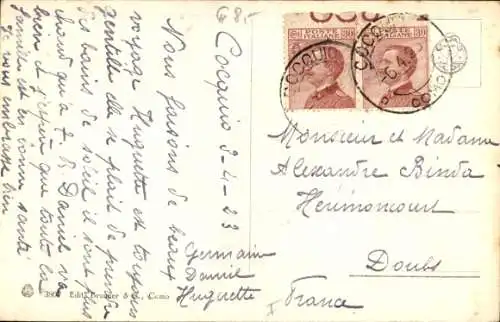 68.-
Cocquio 9-4-23
Nous faisons de beaux
voyage Huguette est toujours
gentille elle se plait de prendre
des bains de soleil il sont plus
chaud qu'a J. B. Daniel va
bien et j'espère que toute la
famille est en bonne santé
Je vous embrasse bien
Germaine
Daniel
Huguette
POSTE ITALIANE
30
POSTE ITALIANE
30
COCQUIO
COCQUIO
COMO
Monsieur et Madame
Alexandre Binda
Hérimoncourt
Doubs
France
Ediz. Brunner & C., Como